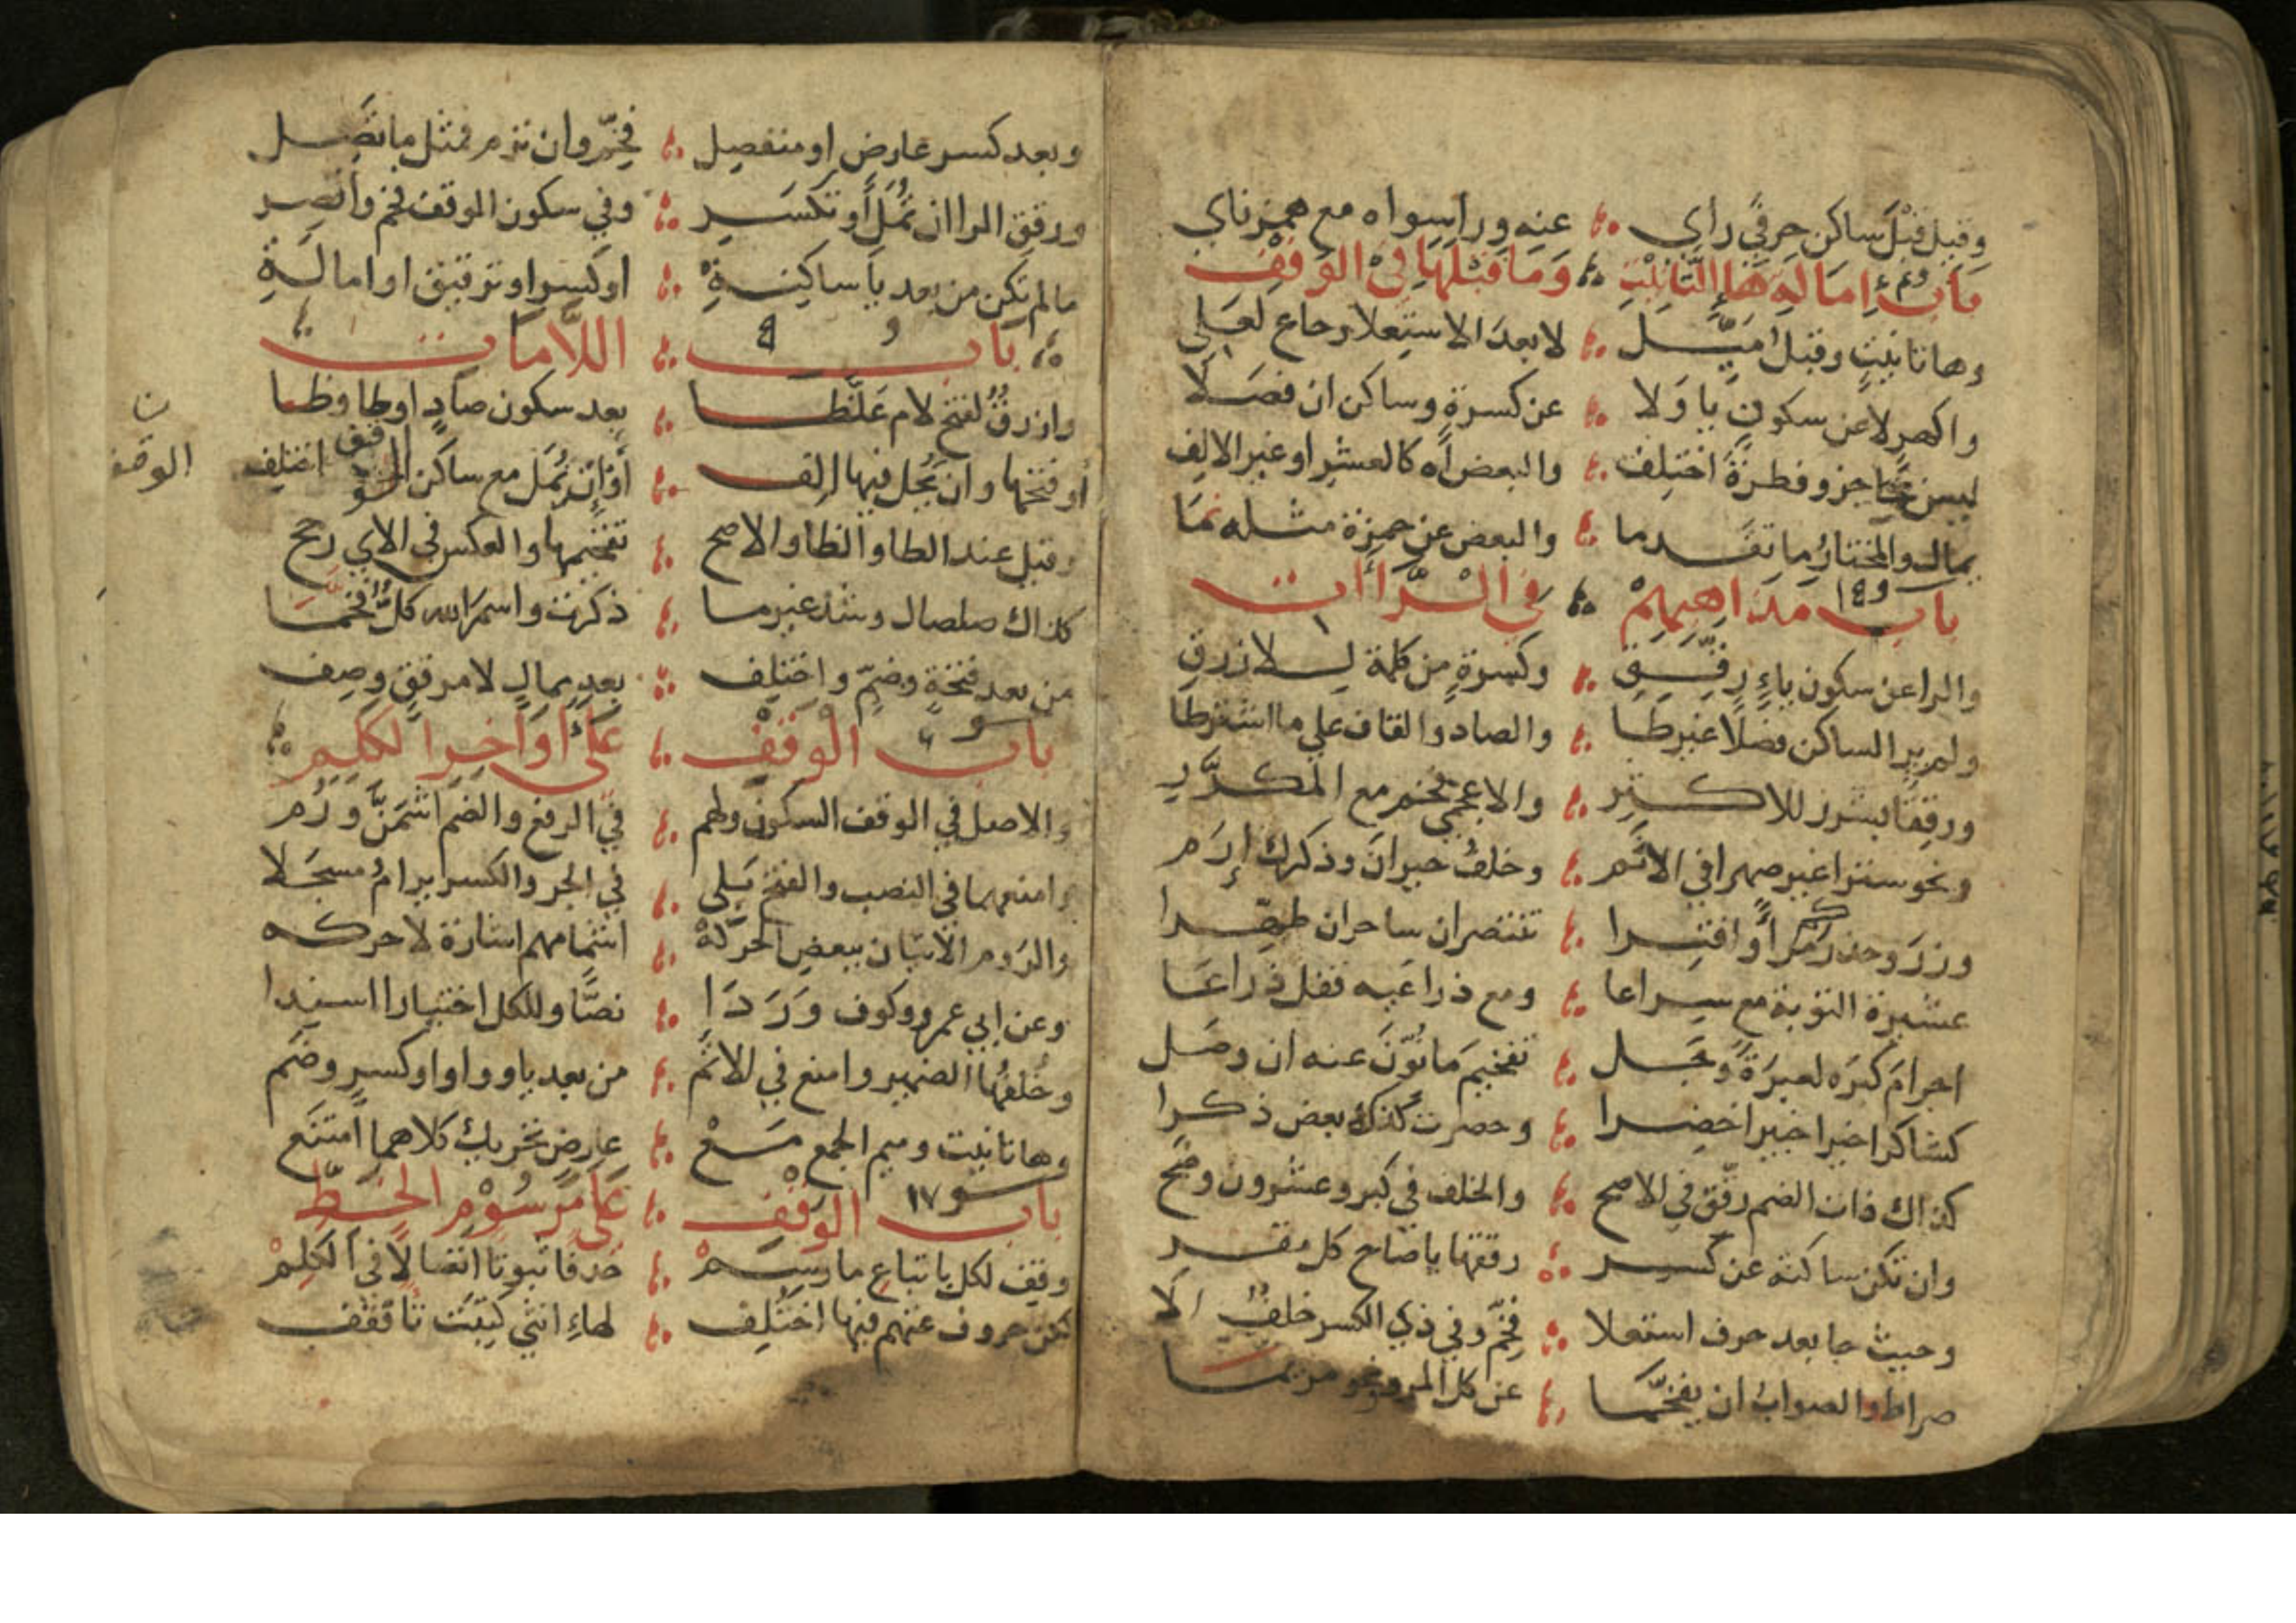 وقيل قبل ساكن حرفي راي ؞ عنه ورا سواه مع همز ناي
باب إمالة هاء التأنيث ؞ وما قبلها في الوقف
وها تانيث وقبل ميل ؞ لا بعد الاستعلا وحاع لعلي
واكهر لا عن سكون يا ولا ؞ عن كسرة وساكن ان فصلا
ليس بحاجز وفطرة اختلف ؞ والبعض اه كالعشر او غير الالف
يمال والمختار ما تقدما ؞ والبعض عن حمزة مثله نما
باب مذاهبهم ؞ في الراأت
والرا عن سكون ياء رقق ؞ وكسرة من كلمة للازرق
ولم ير الساكن فصلا غير طا ؞ والصاد والقاف علي ما اشترطا
ورققا بشرر للاكثر ؞ والاعجمي فخم مع المكرر
ونحو سترا غير صهرا في الاتم ؞ وخلف حيران وذكرك إرم
وزر وحذركم مرا وافترا ؞ تنتصران ساحران طهرا
عشيرة التوبة مع سراعا ؞ ومع ذراعيه فقل ذراعا
اجرام كبره لعبرة وجل ؞ تفخيم ما نون عنه ان وصل
كشاكرا خيرا خبيرا خضرا ؞ وحصرت كذاك بعض ذكرا
كذاك ذات الضم رقق في الاصح ؞ والخلف في كبر وعشرون وضح
وان تكن ساكنة عن كسر ؞ رققها يا صاح كل مقر
وحيث جا بعد حرف استعلا ؞ فخم وفي ذي الكسر خلف الا
صراط والصواب ان يفخما ؞ عن كل المرء ونحو مريما
وبعد كسر عارض او منفصل ؞ فخم وان ترم فمثل ما تصل
ورقق الرا ان تمل أو تكسر ؞ وفي سكون الوقف فخم وانصر
ما لم تكن من بعد يا ساكنة ؞ او كسر او ترقيق او امالة
باب ؞ اللامات
وازرق لفتح لام غلظا ؞ بعد سكون صاد او طا وظا
أو فتحها وان يحل فيها الف ؞ أو إن تمل مع ساكن الوقف اختلف
ن
الوقف
وقيل عند الطا والظا والاصح ؞ تفخيمها والعكس في الاي رجح
كذاك صلصال وشذ غير ما ؞ ذكرت واسم الله كل فخما
من بعد فتحة وضم واختلف ؞ بعد ممال لا مرقق وصف
باب الوقف ؞ على أواخر الكلم
والاصل في الوقف السكون ولهم ؞ في الرفع والضم اشممن ورم
وامنعهما في النصب والفتح بلى ؞ في الجر والكسر يرام مسجلا
والروم الاتيان ببعض الحركة ؞ اشمامهم اشارة لا حركه
وعن ابي عمرو وكوف وردا ؞ نصا وللكل اختيارا اسندا
وخلف ها الضمير وامنع في الاتم ؞ من بعد يا وواو او كسر وضم
وها تانيث وميم الجمع مع ؞ عارض تحريك كلاهما امتنع
باب الوقف ١٧ ؞ على مرسوم الخط
وقف لكل باتباع ما رسم ؞ حذفا ثبوتا اتصالا في الكلم
لكن حروف عنهم فيها اختلف ؞ لهاء انثي كتبت تا فقف